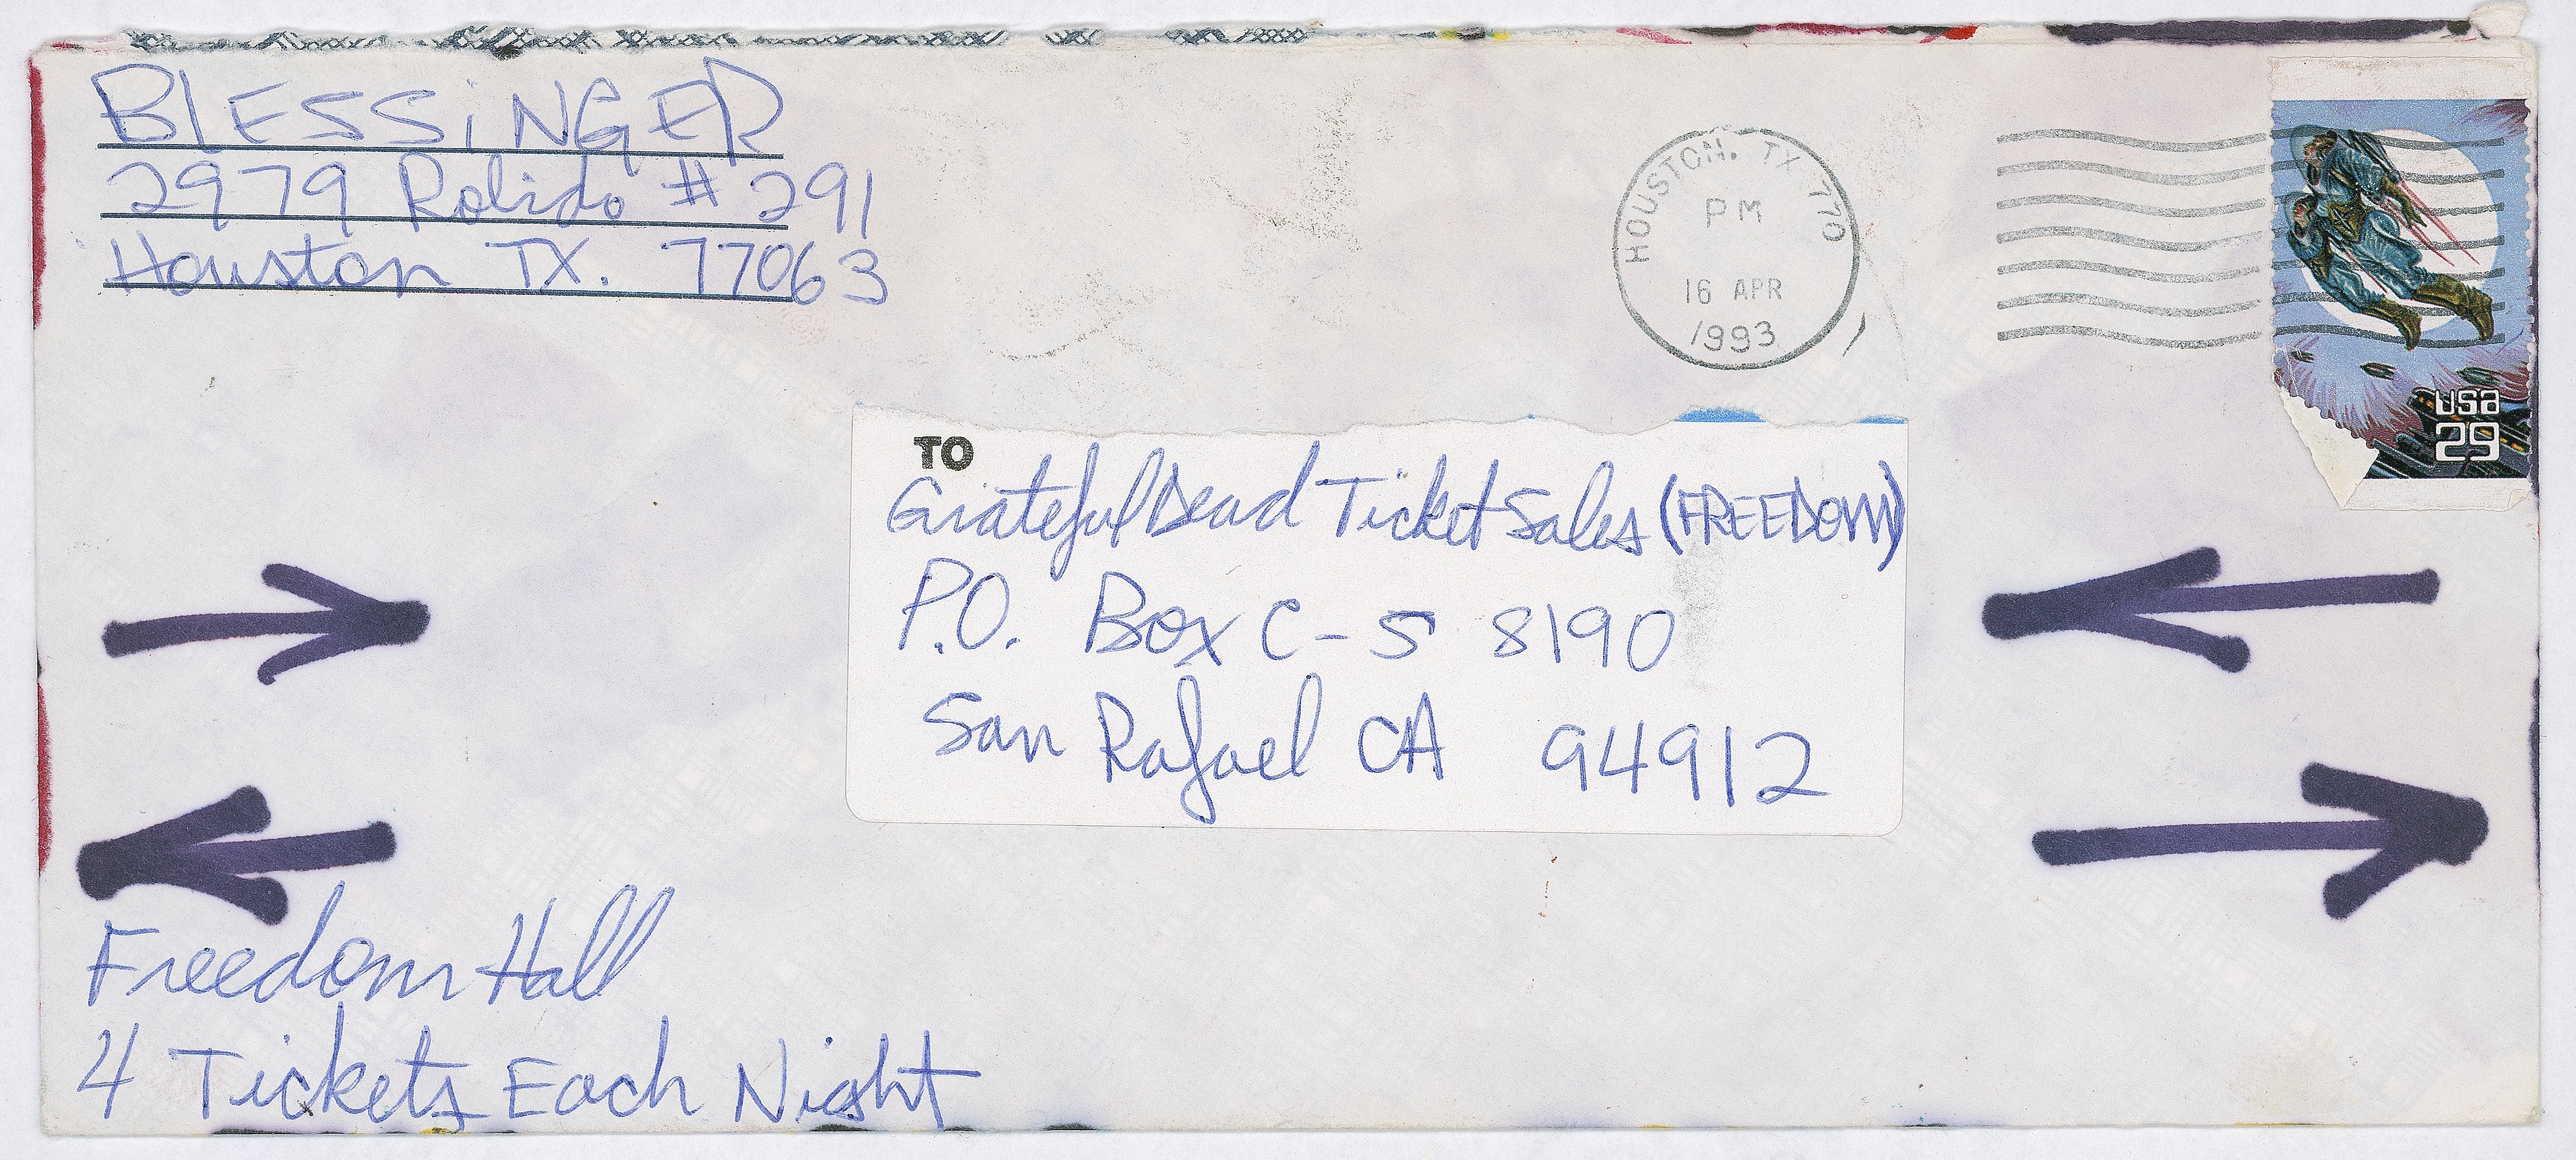 BLESSiNGER
2979 Rolido # 291
Houston TX. 77063
HOUSTON. TX 770
PM
16 APR
1993
usa
29
TO
Grateful Dead Ticket Sales (FREEDOM)
P.O. Box C-S 8190
San Rafael CA 94912
Freedom Hall
4 Tickets Each Night